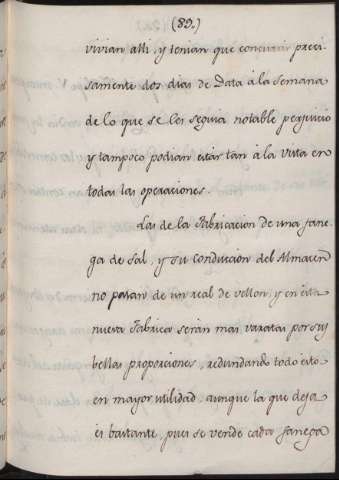 (89.)
vivian alli, y tenian que concurrir preci-
samente dos dias de Data à la semana
de lo que se les seguia notable perjuicio
y tampoco podian estàr tan à la vista en
todas las operaciones.
Las de la Fabricacion de una fane-
ga de Sal, y su conducion del Almacen
no pasan de un real de vellon, y en esta
nueva Fabrica seràn mas varatas por sus
bellas proporciones, redundando todo esto
en mayor utilidad, aunque la que deja
es bastante, pues se vende cada fanega